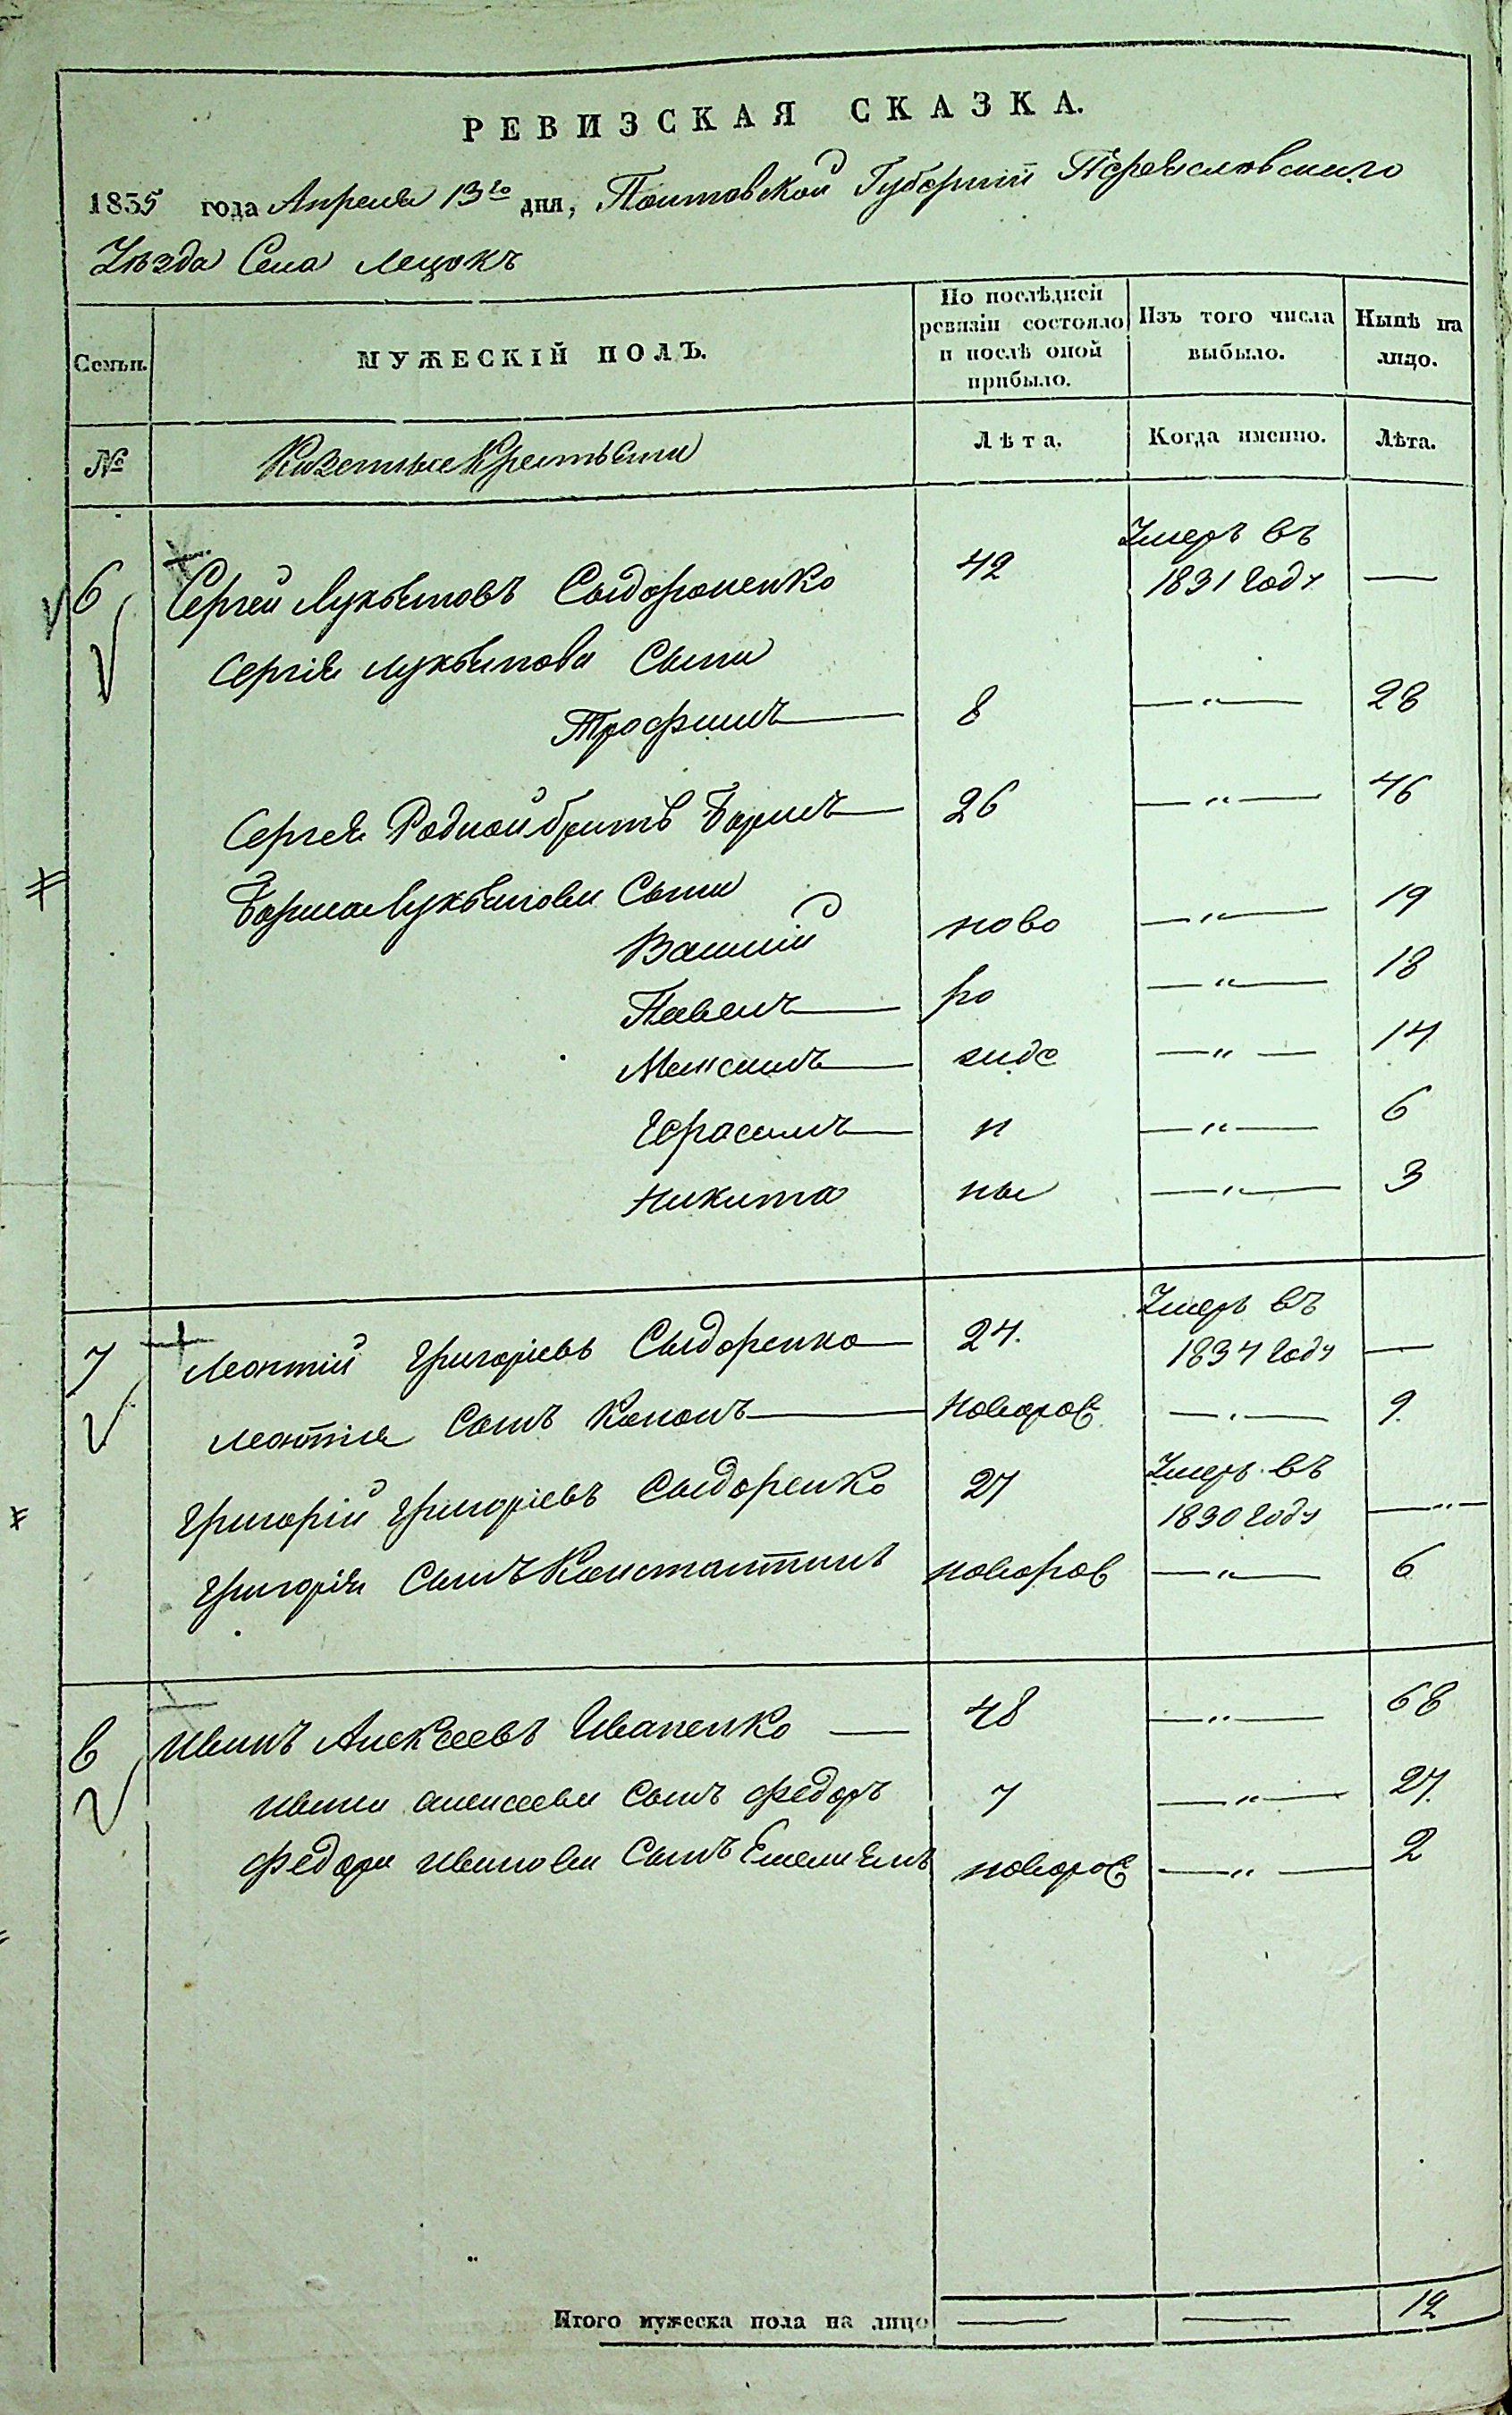 РЕВИЗСКАЯ СКАЗКА.
1835 года Апреля 13го дня, Полтавской Губерніи Переяславского
Уѣзда Села Лецокъ
Семьи. МУЖЕСКІЙ ПОЛЪ. По послѣдней ревизіи состояло и послѣ оной прибыло. Изъ того числа выбыло. Нынѣ на лицо.
№ Казенные Крестьяни Лѣта. Когда именно. Лѣта.
6 Сергей Лукьяновъ Сыдороненко 42 Умеръ въ 1831 году —
Сергія Лукьянова Сыни
Трофимъ — 8 —"— 28
Сергея Родной братъ Борисъ — 26 —"— 46
Бориса Лукьянова Сыни
Василій ново —"— 19
Павелъ — ро —"— 18
Максимъ — жде —"— 14
Герасимъ — н —"— 6
Никита ны —"— 3
7 Леонтій Григоріевъ Сыдоренко — 24. Умеръ въ 1834 году —
Леонтія Сынъ Кононъ — Новорож —"— 9.
Григорій Григоріевъ Сыдоренко 27 Умеръ въ 1830 году —"—
Григорія Сынъ Константинъ новорож —"— 6
8 Иванъ Алексеевъ Иваненко — 48 —"— 68
Ивана Алексеева Сынъ Федоръ 7 —"— 27.
Федора Иванова Сынъ Емельянъ новорож —"— 2
Итого мужеска пола на лицо — — 12